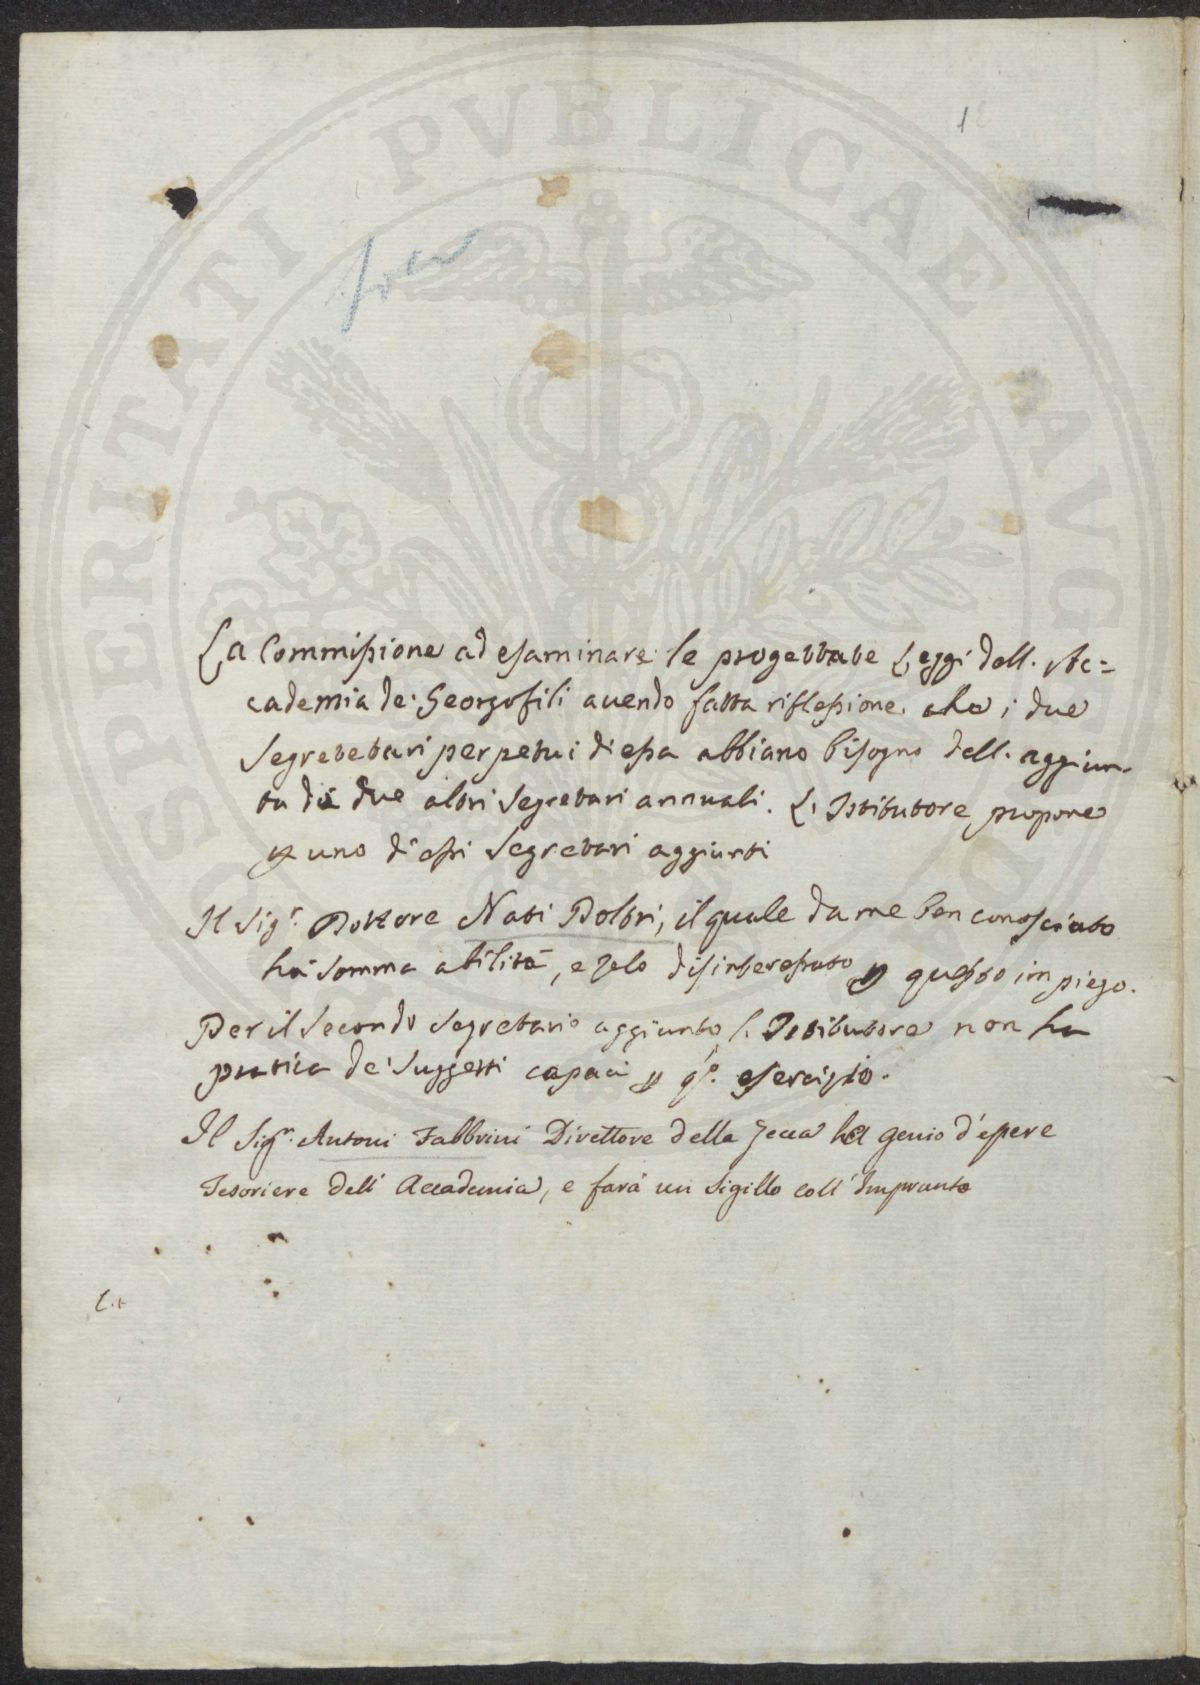 1
PROSPERITATI PVBLICAE AVG
La Commissione ad esaminare le progettate Leggi dell' Ac=
cademia de' Georgofili avendo fatta riflessione, che i due
Segretetari perpetui di essa abbiano bisogno dell' aggiun-
ta di due altri Segretari annuali. L' Istitutore propone
p uno di essi Segretari aggiunti
Il Sigr. Dottore Nati Doltri, il quale da me ben conosciuto
há somma abilità, e zelo disinteressato p questo impiego.
Per il secondo Segretario aggiunto l' Istitutore non ha
pratica de' Suggetti capaci p q.to esercizio.
Il Sigr. Antoni Fabbrini Direttore della Zecca ha genio d'essere
Tesoriere dell' Accademia, e farà un Sigillo coll' Impronta